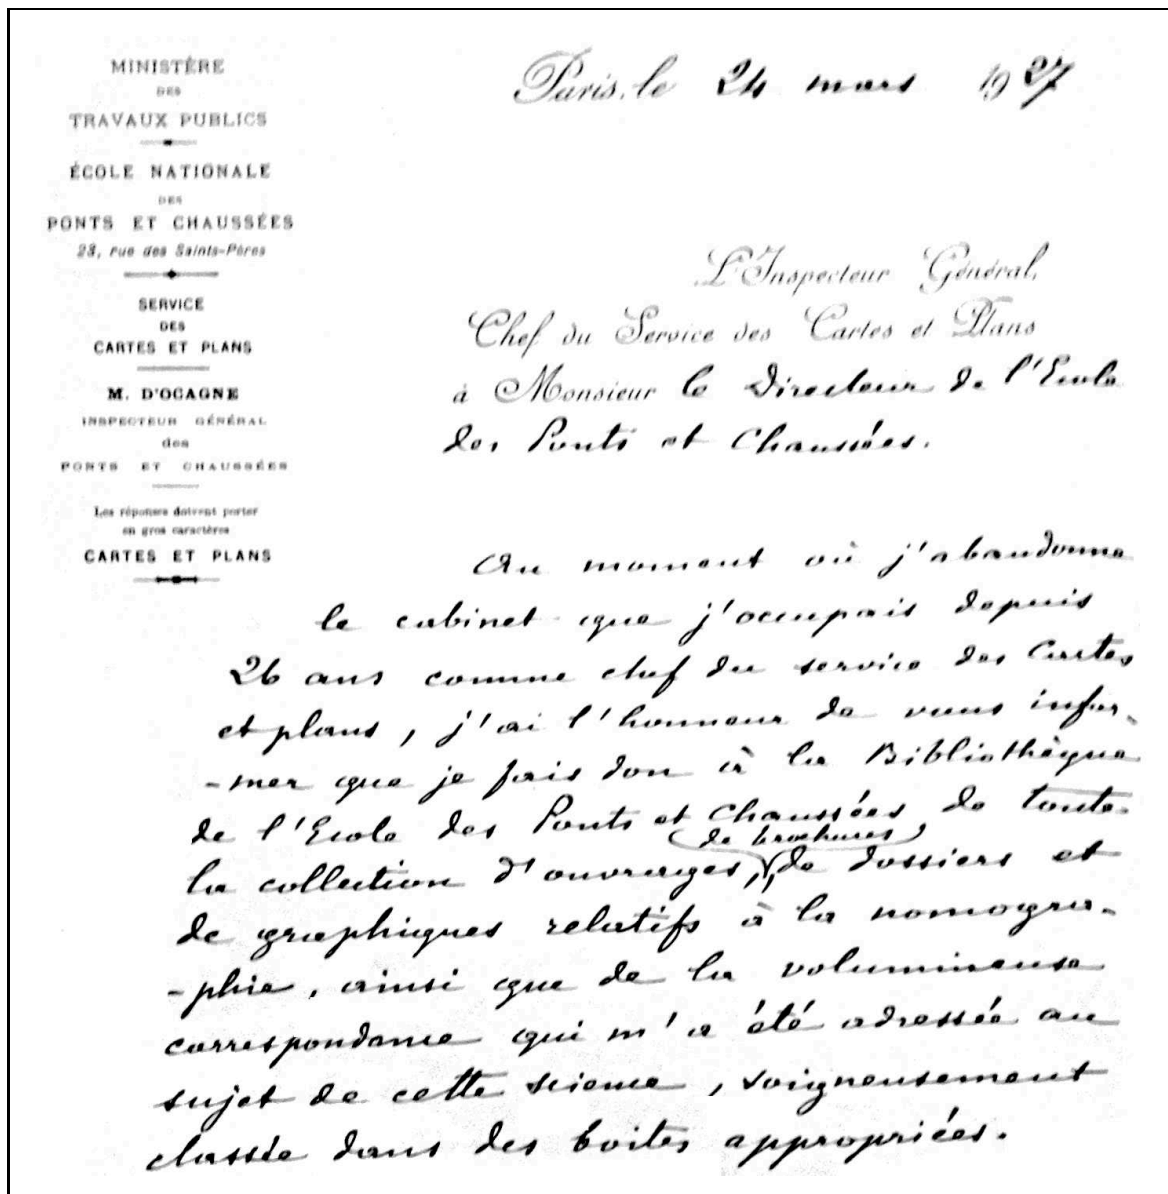 MINISTÈRE
DES
TRAVAUX PUBLICS
ÉCOLE NATIONALE
DES
PONTS ET CHAUSSÉES
28, rue des Saints-Pères
SERVICE
DES
CARTES ET PLANS
M. D'OCAGNE
INSPECTEUR GÉNÉRAL
des
PONTS ET CHAUSSÉES
Les réponses doivent porter
en gros caractères
CARTES ET PLANS
Paris, le 24 mars 1927
L'Inspecteur Général,
Chef du Service des Cartes et Plans
à Monsieur le Directeur de l'Ecole
des Ponts et Chaussées.
Au moment où j'abandonne
le cabinet que j'occupais depuis
26 ans comme chef du service des Cartes
et plans, j'ai l'honneur de vous infor-
-mer que je fais don à la Bibliothèque
de l'Ecole des Ponts et Chaussées de toute
la collection d'ouvrages, de brochures, de dossiers et
de graphiques relatifs à la nomogra-
-phie, ainsi que de la volumineuse
correspondance qui m'a été adressée au
sujet de cette science, soigneusement
classée dans des boites appropriées.